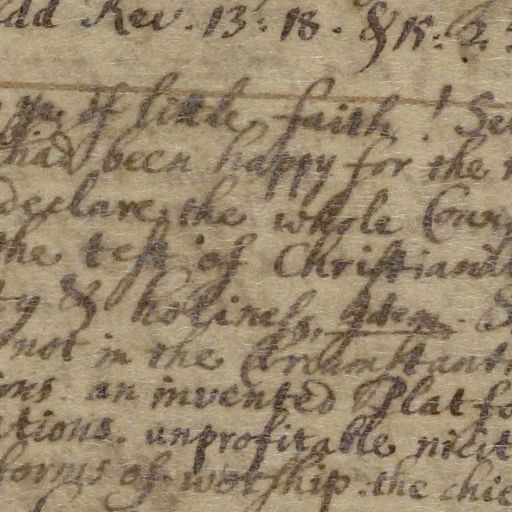 dd Rev. 13: 18. & 15: 2.
ye of little faith! Se
had been happy for the
declare, the whole Cou
the test of Christianit
ty & holiness. Idem. S
not in the Circumstant
ions. an invented Platfo
ations. unprofitable nicit
forms of worship. the chie